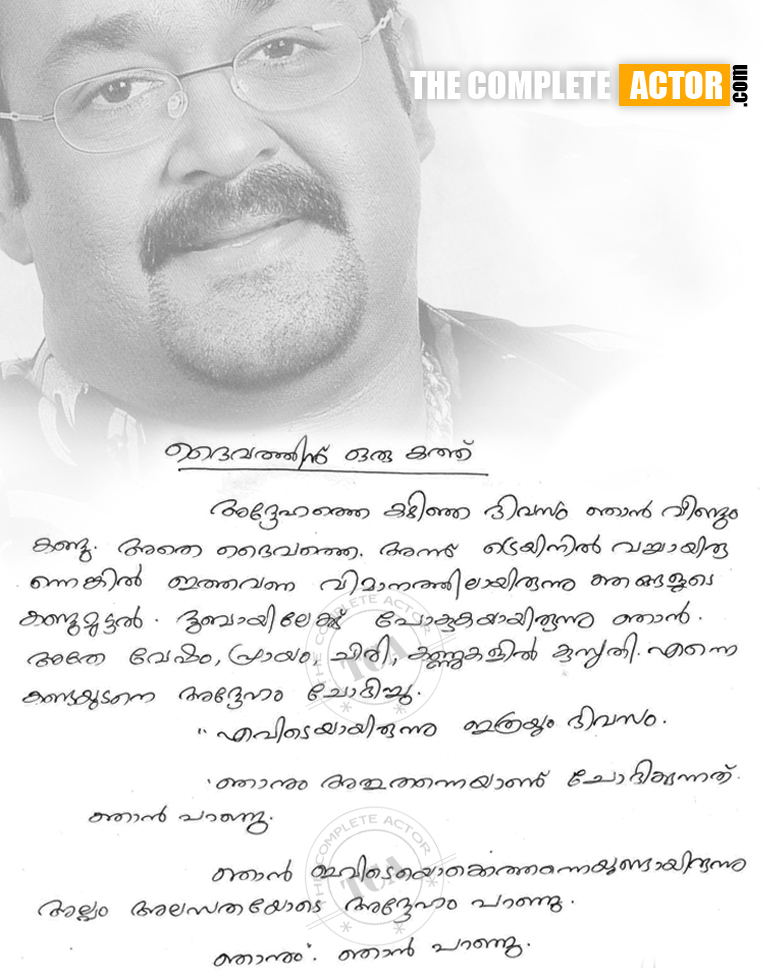 THE COMPLETE ACTOR.com
ദൈവത്തിന് ഒരു കത്ത്
അദ്ദേഹത്തെ കഴിഞ്ഞ ദിവസം ഞാൻ വീണ്ടും
കണ്ടു. അതെ ദൈവത്തെ. അന്ന് ട്രെയിനിൽ വച്ചായിരു
ന്നെങ്കിൽ ഇത്തവണ വിമാനത്തിലായിരുന്നു ഞങ്ങളുടെ
കണ്ടുമുട്ടൽ. ദുബായിലേക്ക് പോകുകയായിരുന്നു ഞാൻ.
അതേ വേഷം, പ്രായം, ചിരി, കണ്ണുകളിൽ കുസൃതി. എന്നെ
കണ്ടയുടനെ അദ്ദേഹം ചോദിച്ചു.
"എവിടെയായിരുന്നു ഇത്രയും ദിവസം.
'ഞാനും അതുതന്നെയാണ് ചോദിക്കുന്നത്.
ഞാൻ പറഞ്ഞു.
ഞാൻ ഇവിടെയൊക്കെത്തന്നെയുണ്ടായിരുന്നു
അല്പം അലസതയോടെ അദ്ദേഹം പറഞ്ഞു.
ഞാനും'. ഞാൻ പറഞ്ഞു.
THE COMPLETE ACTOR
TCA
THE COMPLETE ACTOR
TCA